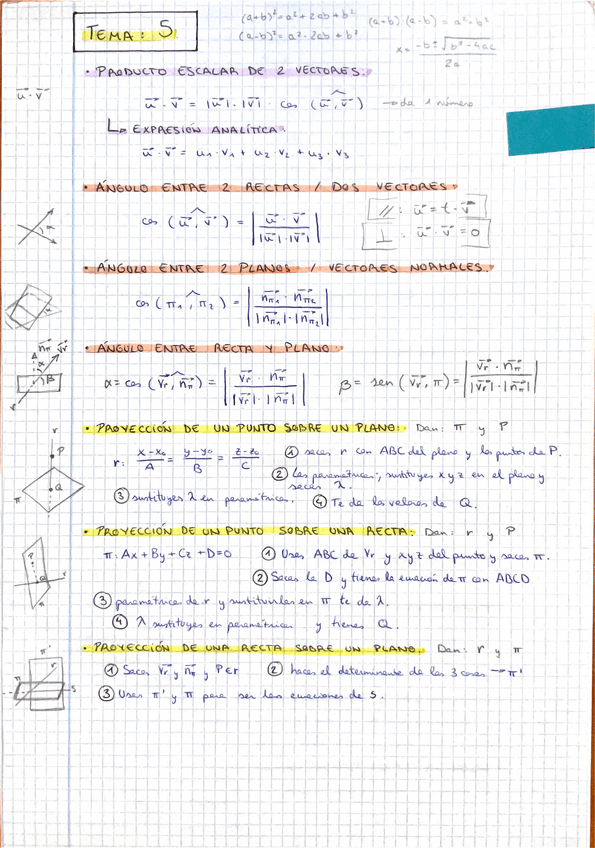 TEMA: 5
(a+b)² = a² + 2ab + b²
(a+b)·(a-b) = a² - b²
(a-b)² = a² - 2ab + b²
x = -b ± √(b² - 4ac) / 2a
• PRODUCTO ESCALAR DE 2 VECTORES.
u⃗ · v⃗
u⃗ · v⃗ = |u⃗| · |v⃗| · cos (u⃗, v⃗) → da 1 número
↳ EXPRESIÓN ANALÍTICA:
u⃗ · v⃗ = u1 · v1 + u2 · v2 + u3 · v3
• ÁNGULO ENTRE 2 RECTAS / DOS VECTORES.
cos (u⃗, v⃗) = | u⃗ · v⃗ / |u⃗| · |v⃗| |
// : u⃗ = t · v⃗
⊥ : u⃗ · v⃗ = 0
• ÁNGULO ENTRE 2 PLANOS / VECTORES NORMALES.
cos (π1, π2) = | n⃗π1 · n⃗π2 / |n⃗π1| · |n⃗π2| |
• ÁNGULO ENTRE RECTA Y PLANO.
α = cos (v⃗r, n⃗π) = | v⃗r · n⃗π / |v⃗r| · |n⃗π| |
β = sen (v⃗r, π) = | v⃗r · n⃗π / |v⃗r| · |n⃗π| |
• PROYECCIÓN DE UN PUNTO SOBRE UN PLANO: Dan: π y P
r: x-x0 / A = y-y0 / B = z-z0 / C
① sacas r con ABC del plano y los puntos de P.
② Las paramétricas, sustituyes x y z en el plano y
sacas λ.
③ sustituyes λ en paramétricas.
④ Te da los valores de Q.
• PROYECCIÓN DE UN PUNTO SOBRE UNA RECTA: Dan: r y P
π: Ax + By + Cz + D = 0
① Usas ABC de Vr y xyz del punto y sacas π.
② Sacas la D y tienes la ecuación de π con ABCD
③ paramétrica de r y sustituirlas en π te da λ.
④ λ sustituyes en paramétricas y tienes Q.
• PROYECCIÓN DE UNA RECTA SOBRE UN PLANO. Dan: r y π
① Sacas v⃗r y n⃗π y P∈r
② haces el determinante de las 3 cosas → π'
③ Usas π' y π para ser las ecuaciones de S.